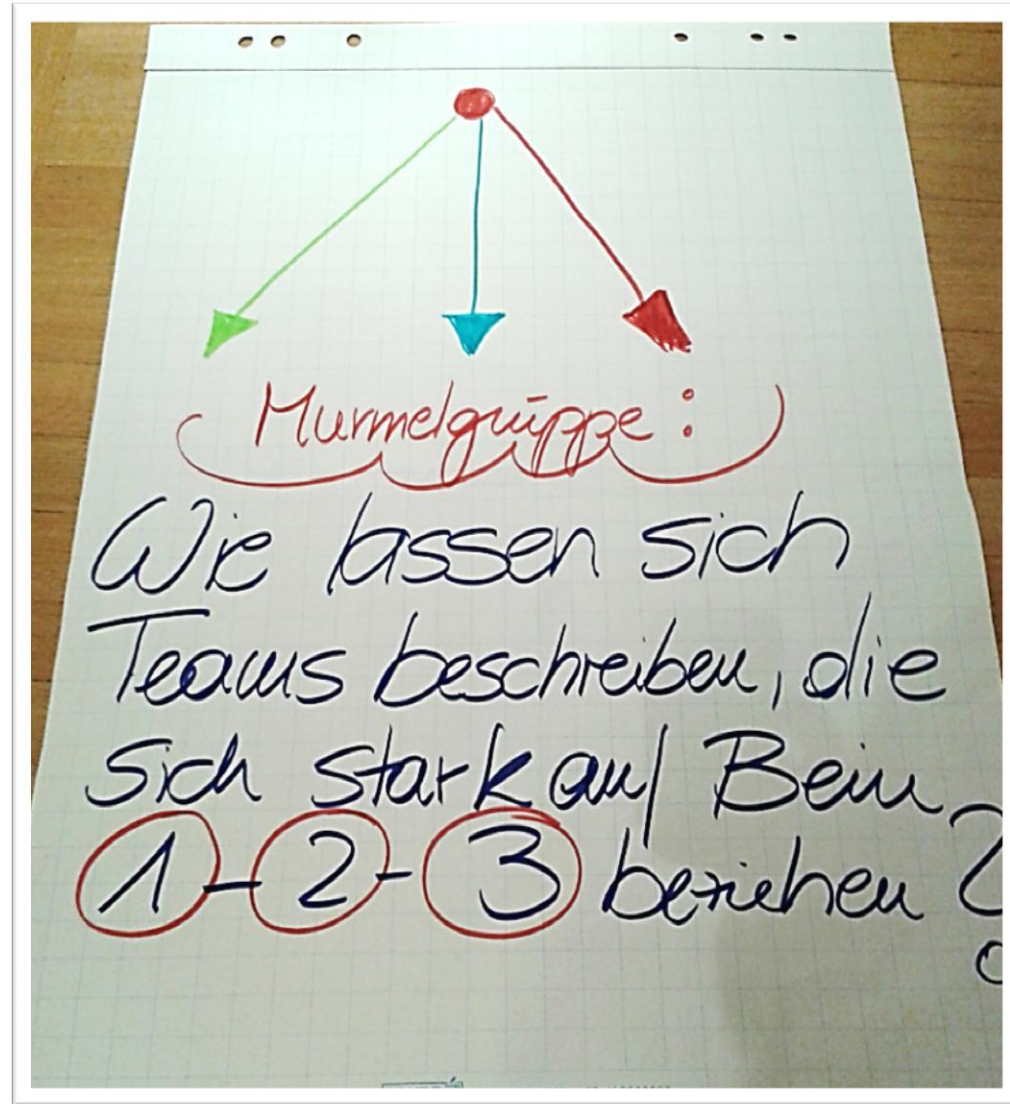 Murmelgruppe:
Wie lassen sich
Teams beschreiben, die
sich stark auf Bein
1-2-3 beziehen?